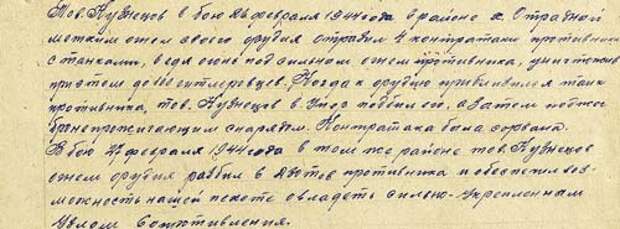 Тов. Кузнецов в бою 26 февраля 1944 года в районе х. Отрадной
метким огнем своего орудия отразил 4 контратаки противника
с танками, ведя огонь под сильном огнем противника, уничтожив
при этом до 100 гитлеровцев. Когда к орудию приблизился танк
противника, тов. Кузнецов в упор подбил его, а затем поджег
бронепрожигающим снарядом. Контратака была сорвана.
В бою 27 февраля 1944 года в том же районе тов. Кузнецов
огнем орудия разбил 2 дзотов противника и обеспечил воз-
можность нашей пехоте овладеть сильно-укрепленным
узлом сопротивления.